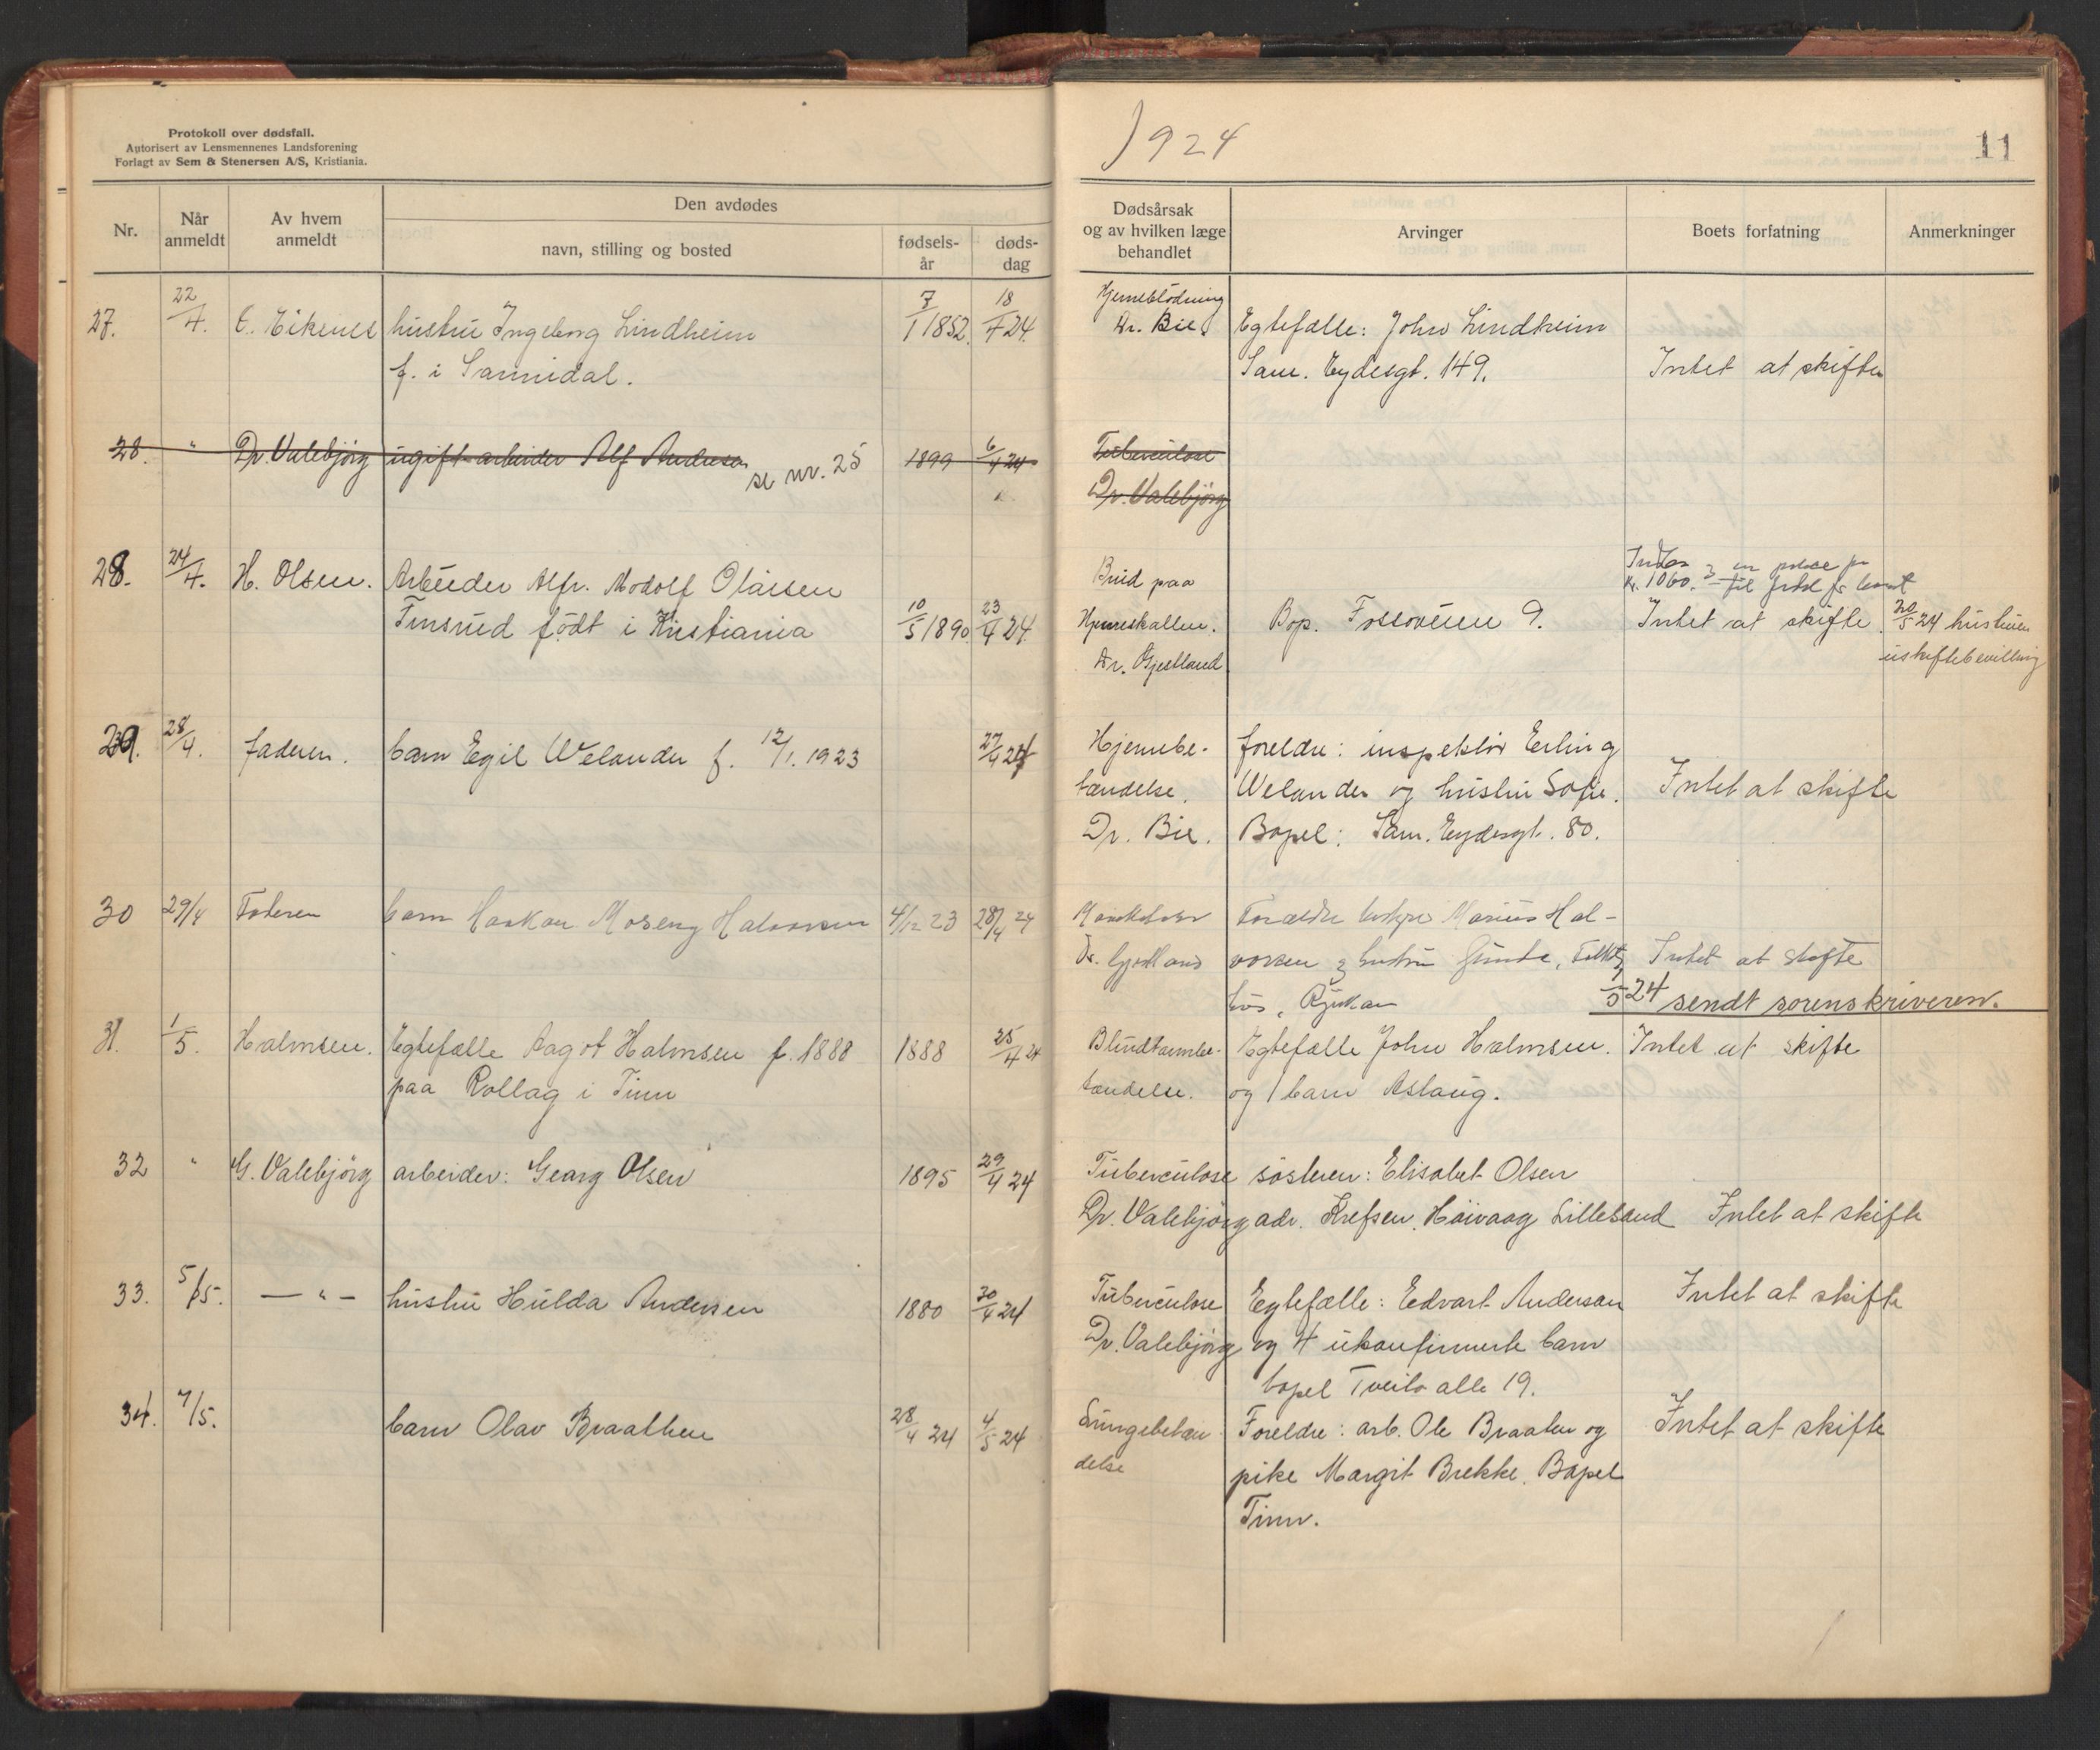 Protokoll over dødsfall.
Autorisert av Lensmennenes Landsforening
Forlagt av Sem & Stenersen A/S, Kristiania.
1924
11
Nr.
Når anmeldt
Av hvem anmeldt
Den avdødes
navn, stilling og bosted
fødsels-år
døds-dag
Dødsårsak og av hvilken læge behandlet
Arvinger
Boets forfatning
Anmerkninger
27. 22/4. E. Eikenes hustru Ingeborg Lindheim 7/1 1852. 18/4 24. Hjerneblödning Egtefælle: John Lindheim
f. i Sannidal. Dr. Bie. Sam. Eydesgt. 149. Intet at skifte
28. " Dr. Valebjörg ugift arbeider Alf Andersen se nr. 25 1899 6/4 24 Tuberculose
Dr. Valebjörg
28. 24/4. H. Olsen. Arbeider Alfr. Modolf Olaisen Brud paa
kr. 1060.
Finsrud födt i Kristiania 10/5 1890 23/4 24. Hjerneskallen. Bop. Fossoveien 9. Intet at skifte. 20/5 24 hustruen
Dr. Gjestland uskiftebevilling
29. 28/4. faderen. barn Egil Welander f. 12/1. 1923 27/4 24 Hjernebe- foreldre: inspektör Erling
tændelse. Welander og hustru Sofie. Intet at skifte
Dr. Bie. Bopel: Sam. Eydesgt. 80.
30 29/4 Faderen barn Haakon Moseng Halvorsen 4/12 23 28/4 24 Forældre Marius Hal-
vorsen & hustru Intet at skifte
Rjukan 5 24 sendt sorenskriveren.
31. 1/5. Halmsen. Egtefælle Aagot Halmsen f. 1888 1888 25/4 24 Blindtarmbe- Egtefælle John Halmsen. Intet at skifte
paa Rollag i Tinn tændelse. og 1 barn Aslaug.
32 " G. Valebjörg arbeider: Georg Olsen 1895 29/4 24 Tuberculose sösteren: Elisabet Olsen
Dr. Valebjörg adr. Höivaag Lillesand Intet at skifte
33. 5/5. — " — hustru Hulda Andersen 1880 30/4 24 Tuberculose Egtefælle: Edvart Andersen Intet at skifte
Dr. Valebjörg og 4 ukonfirmerte barn
bopel Tveito alle 19.
34. 7/5. barn Olav Braathen 28/4 24 4/5 24 Lungebetæn- Foreldre: arb. Ole Braaten og Intet at skifte
delse pike Margit Brekke. Bopel
Tinn.